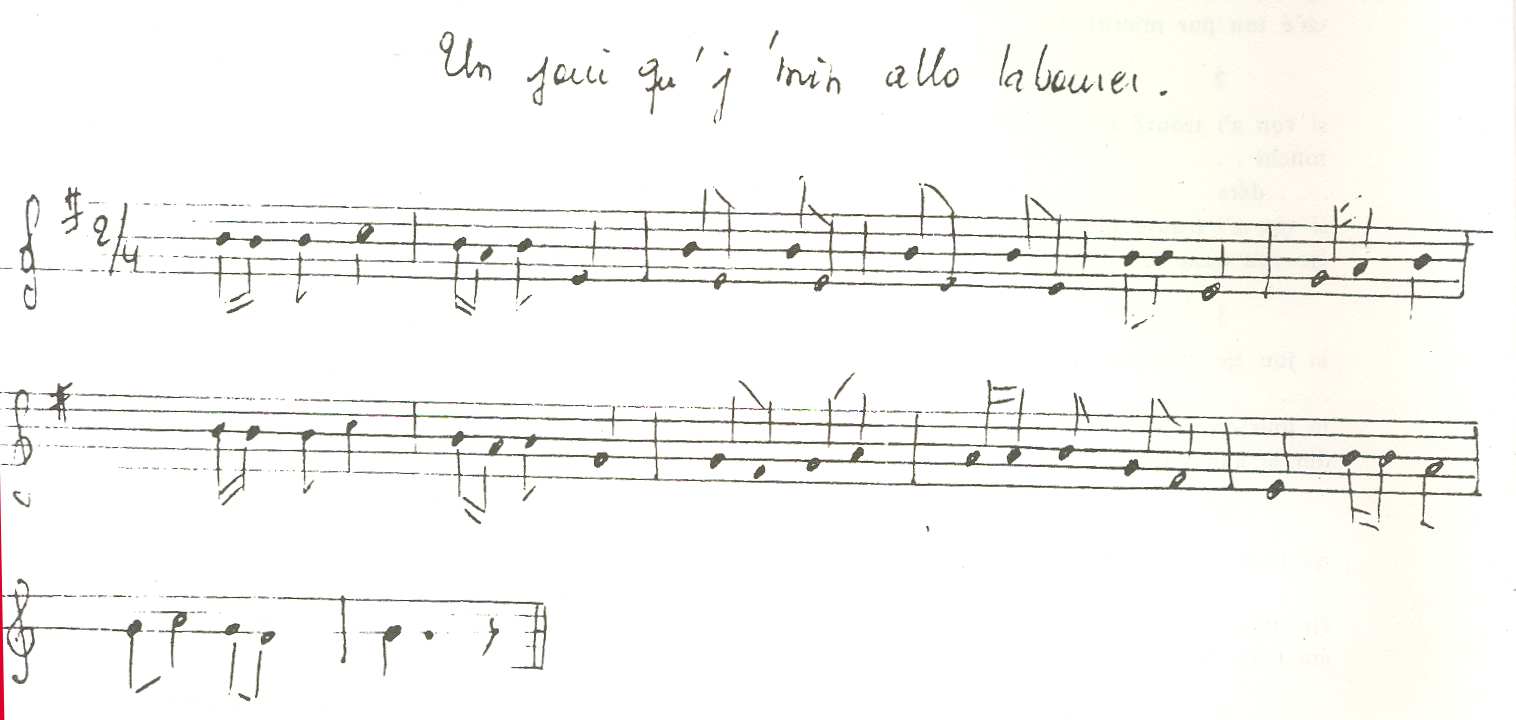 Un joui qu'j'min allo labourer.
2/4